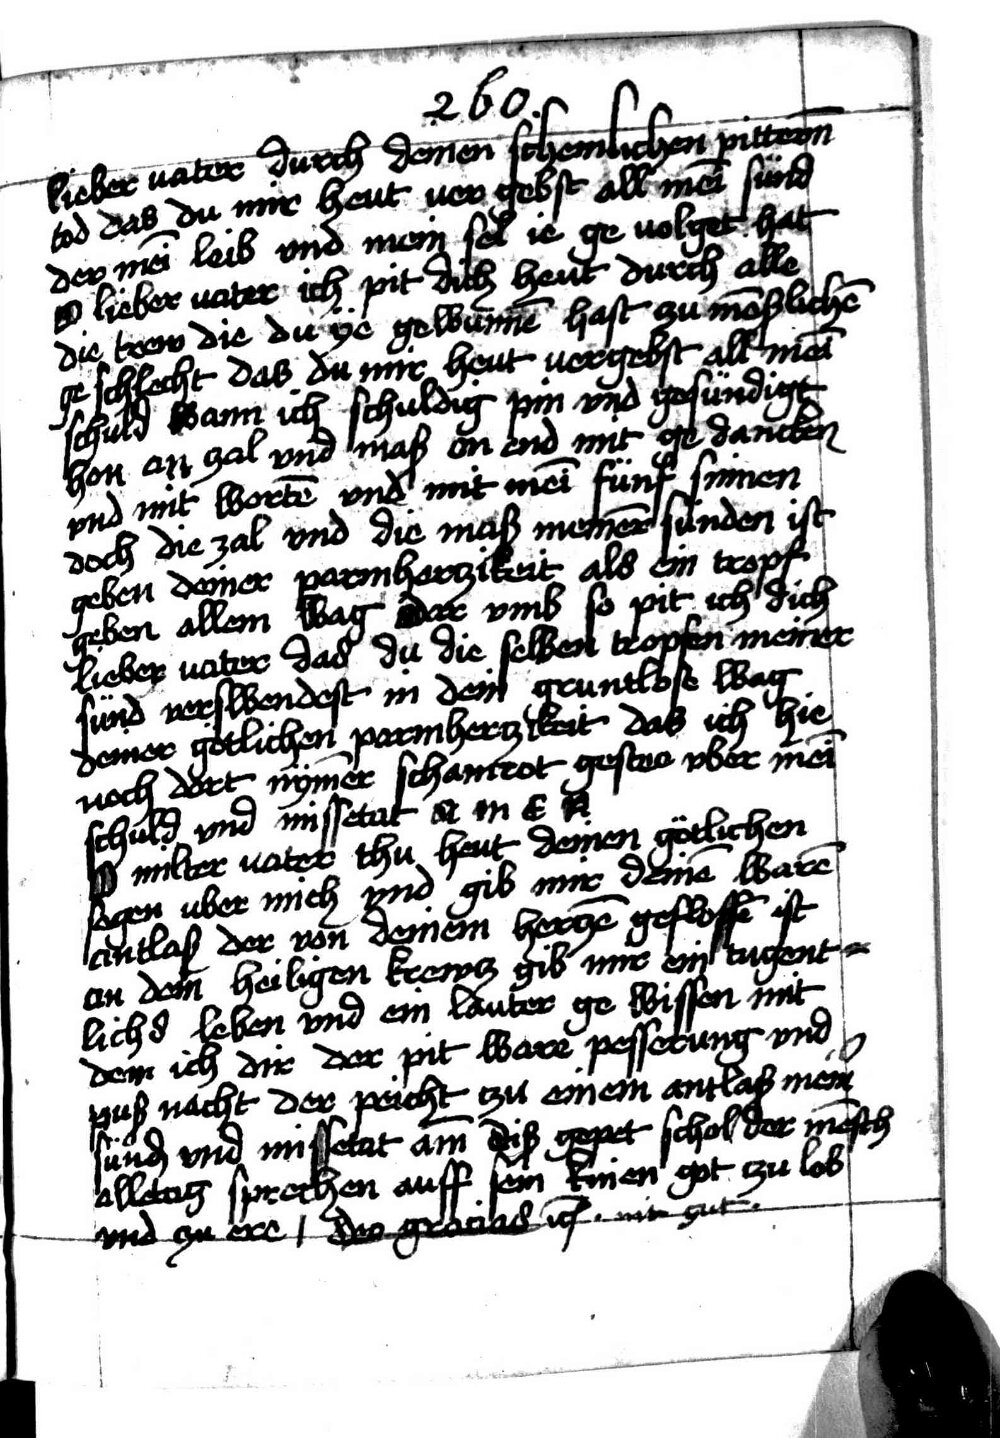 260.
lieber vater durch deinen schemlichen pittern̄
tod das du mir heut ver gebst all mēi sünd
der mēi leib vnd mein sel ie ge volget hat
O lieber vater ich pit dich heut durch alle
die trew die du ye gewunnē hast zu mēschlichē
ge schlecht das du mir heut vergebst all mēi
schuld wann ich schuldig pin vnd gesündigt
hon an zal vnd maß on end mit ge dancken
vnd mit wortē vnd mit mēi fünf sinnen
doch die zal vnd die maß meinēr sünden ist
geben deiner parmhertzikeit als ein tropf
geben allem wag dar vmb so pit ich dich
lieber vater das du die selben tropfen meiner
sünd verswendest in dein gruntlose wag
deiner götlichen parmhertzikeit das ich hie
noch dort nȳmer schamrot gestee vber mēi
schuld vnd missetat A M E N
O milter vater thu heut deinen götlichen
segen vber mich vnd gib mir deinē warē
antlaß der von deinem hertzē geflossē ist
an dem heiligen krewtz gib mir ein tugent=
lichs leben vnd ein lauter ge wissen mit
dem ich dir der pit ware pesserung vnd
puß nacht der peicht zu einem antlaß mein
sünd vnd missetat am̄ diß gepet schol der mēsch
alletag sprechen auff sein knien got zu lob
vnd zu ere | deo gracias ich .